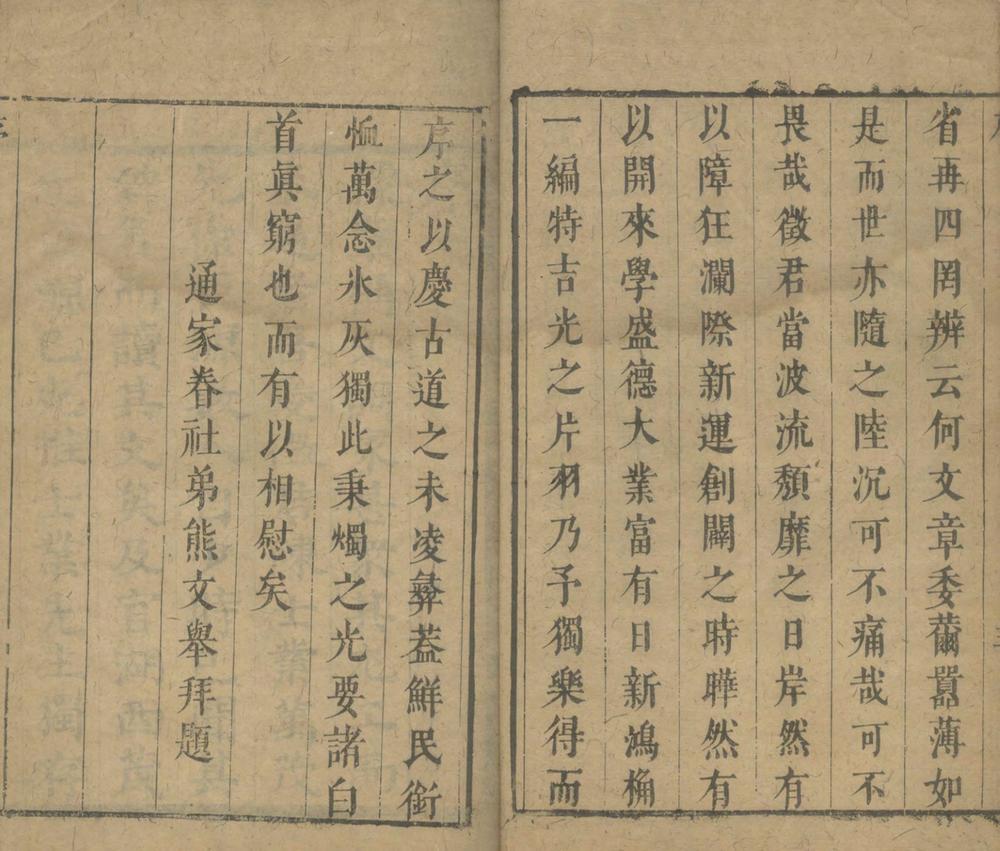 省再四罔辨云何文章委薾嚚薄如
是而世亦隨之陸沉可不痛哉可不
畏哉徵君當波流頽靡之日岸然有
以障狂瀾際新運創闢之時曄然有
以開來學盛德大業富有日新鴻桷
一編特吉光之片羽乃予獨樂得而
序之以慶古道之未凌彝蓋鮮民銜
恤萬念氷灰獨此秉燭之光要諸白
首眞窮也而有以相慰矣
通家眷社弟熊文舉拜題